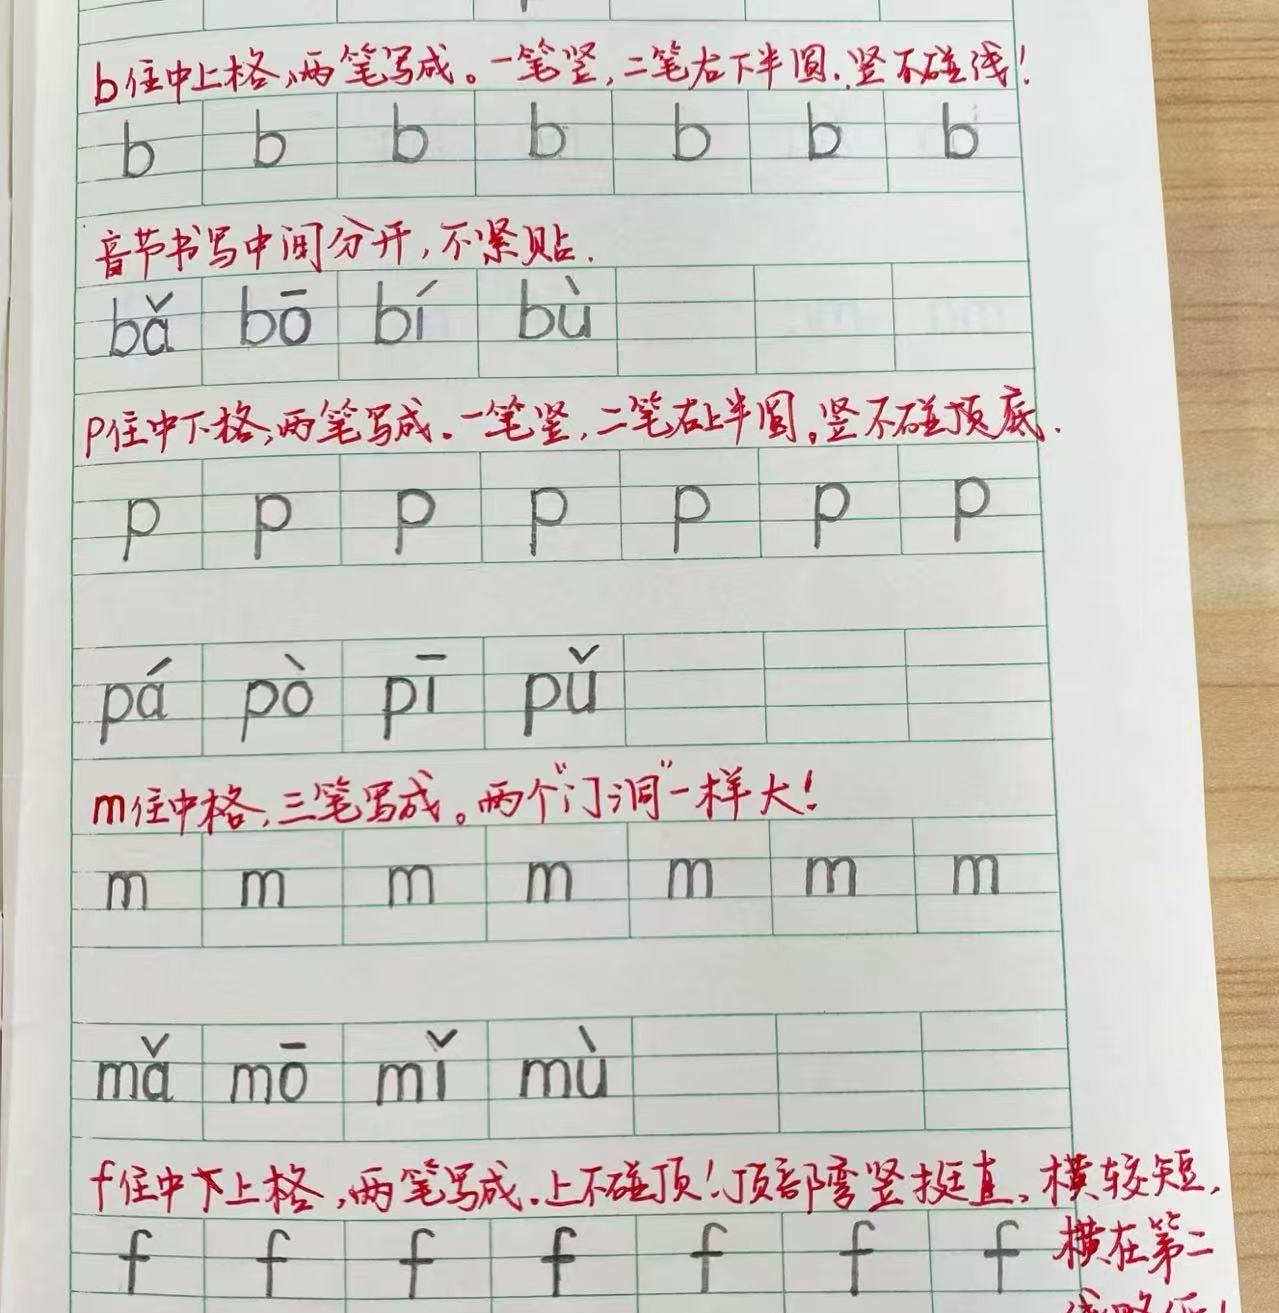 b住中上格,两笔写成。一笔竖,二笔右下半圆.竖不碰线!
b b b b b b b
音节书写中间分开,不紧贴.
bǎ bō bí bù
p住中下格,两笔写成.一笔竖,二笔右上半圆。竖不碰顶底.
p p p p p p p
pá pò pī pǔ
m住中格,三笔写成。两个“门洞”一样大!
m m m m m m m
mǎ mō mǐ mù
f住中下上格,两笔写成.上不碰顶!顶部弯竖挺直。横较短,
f f f f f f f 横在第二